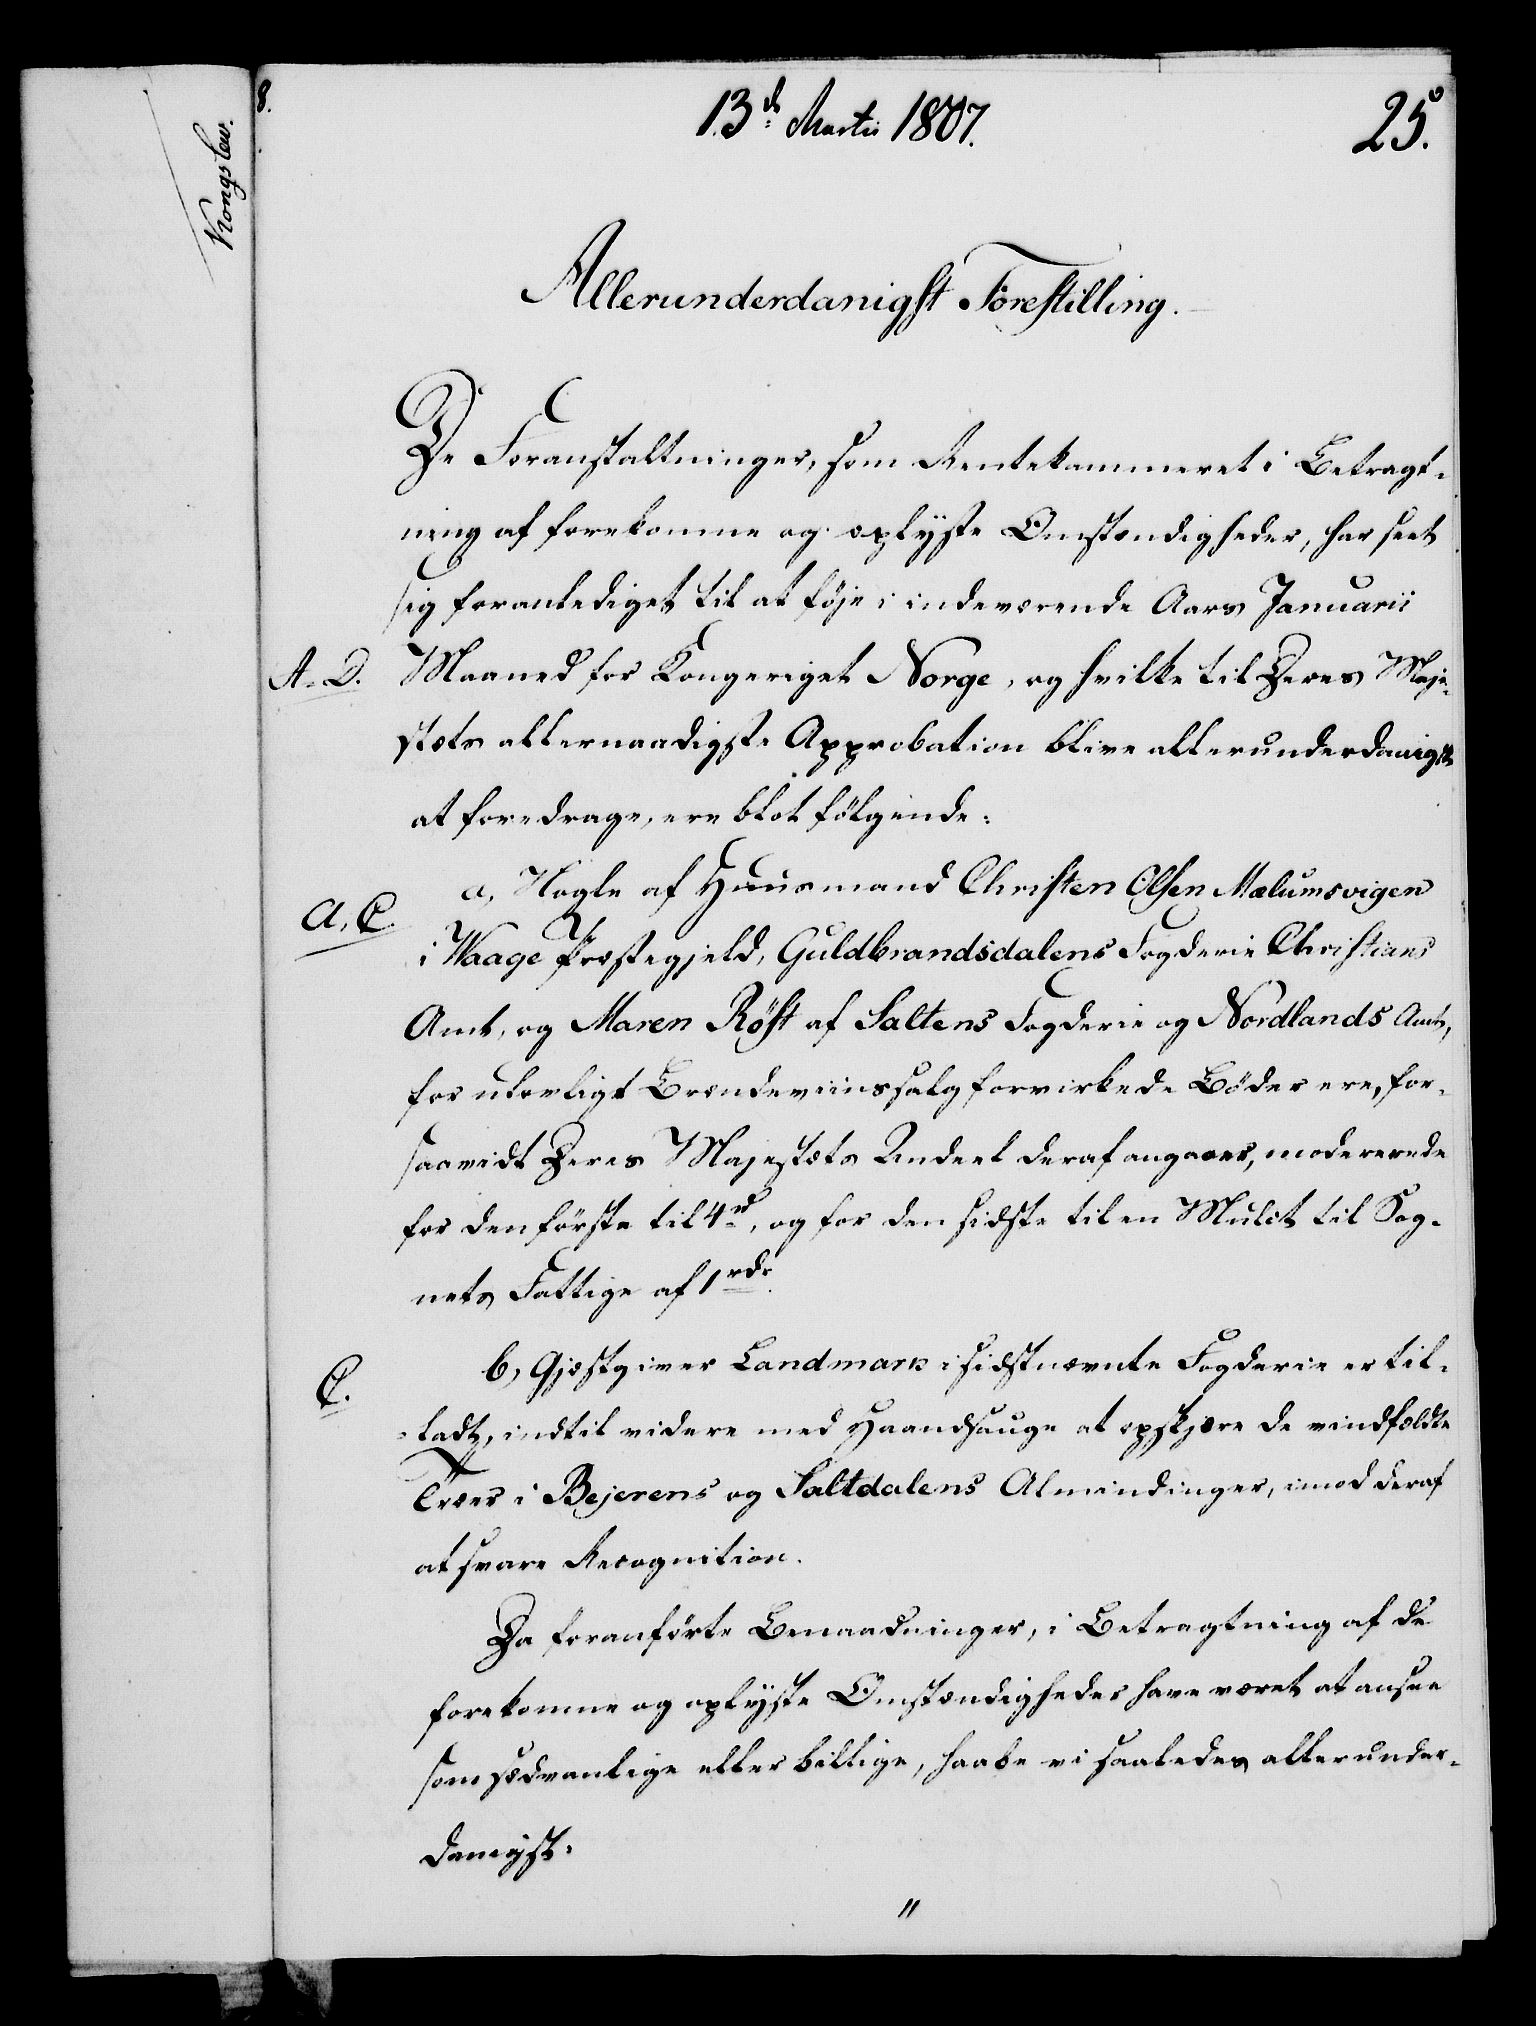 8.
Kongslew.
13d Martii 1807.
25.
Allerunderdanigst Forestilling.
De Foranstaltninger, som Rentekammeret i Betragt-
ning af forekomne og oplÿste Omstændigheder, har seet
sig foranlediget til at føje i indeværende Aars Januarii
A-D.
Maaned for Kongeriget Norge, og hvilke til Deres Maje-
stæts allernaadigste Approbation blive allerunderdanigst
at foredrage, ere blot følgende:
A, C.
a, Nogle af Huusmand Christen Olsen Mælumsvigen
i Waage Præstegjeld, Guldbrandsdalens Fogderie Christians
Amt, og Maren Röst af Saltens Fogderie og Nordlands Amt,
for ulovligt Brændeviinssalg forvirkede Bøder ere, for-
saavidt Deres Majestæts Andeel deraf angaaer, modererede
for den første til 4rd, og for den sidste til en Mulct til Sog-
nets Fattige af 1rdr.
C.
b, Gjæstgiver Landmark i sidstnævnte Fogderie er til-
ladt, indtil videre med Haandsauge at opskjære de vindfældte
Træer i Bejerens og Saltdalens Almindinger, imod deraf
at svare Recognition.
Da foranførte Benaadninger, i Betragtning af de
forekomne og oplÿste Omstændigheder have været at ansee
som sædvanlige eller billige, haabe vi saaledes allerunder-
danigst:
〃